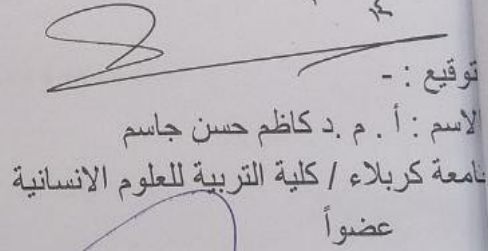 ١٤
توقيع : -
الاسم : أ . م .د كاظم حسن جاسم
جامعة كربلاء / كلية التربية للعلوم الانسانية
عضواً